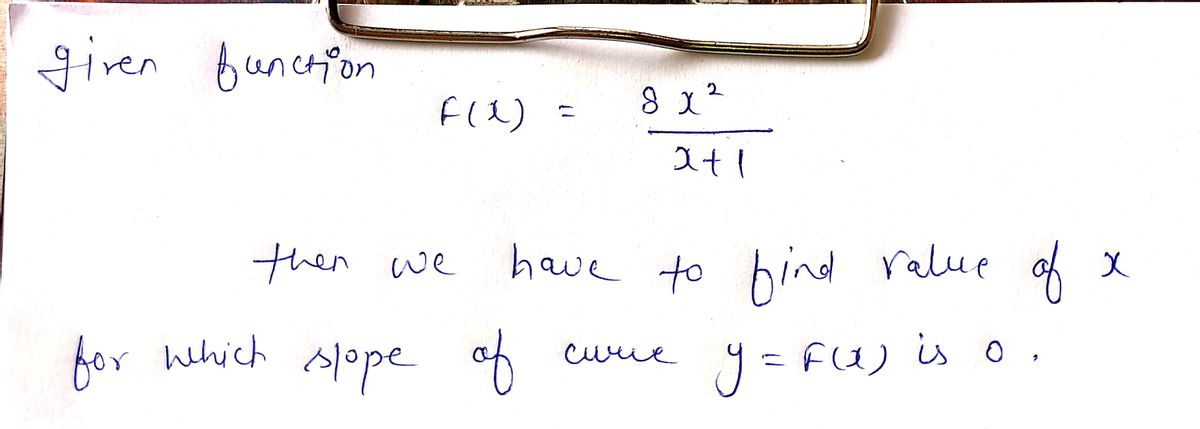 given function
F(x) = 8 x²
x+1
then we have to find value of x
for which slope of curve y = F(x) is 0 .